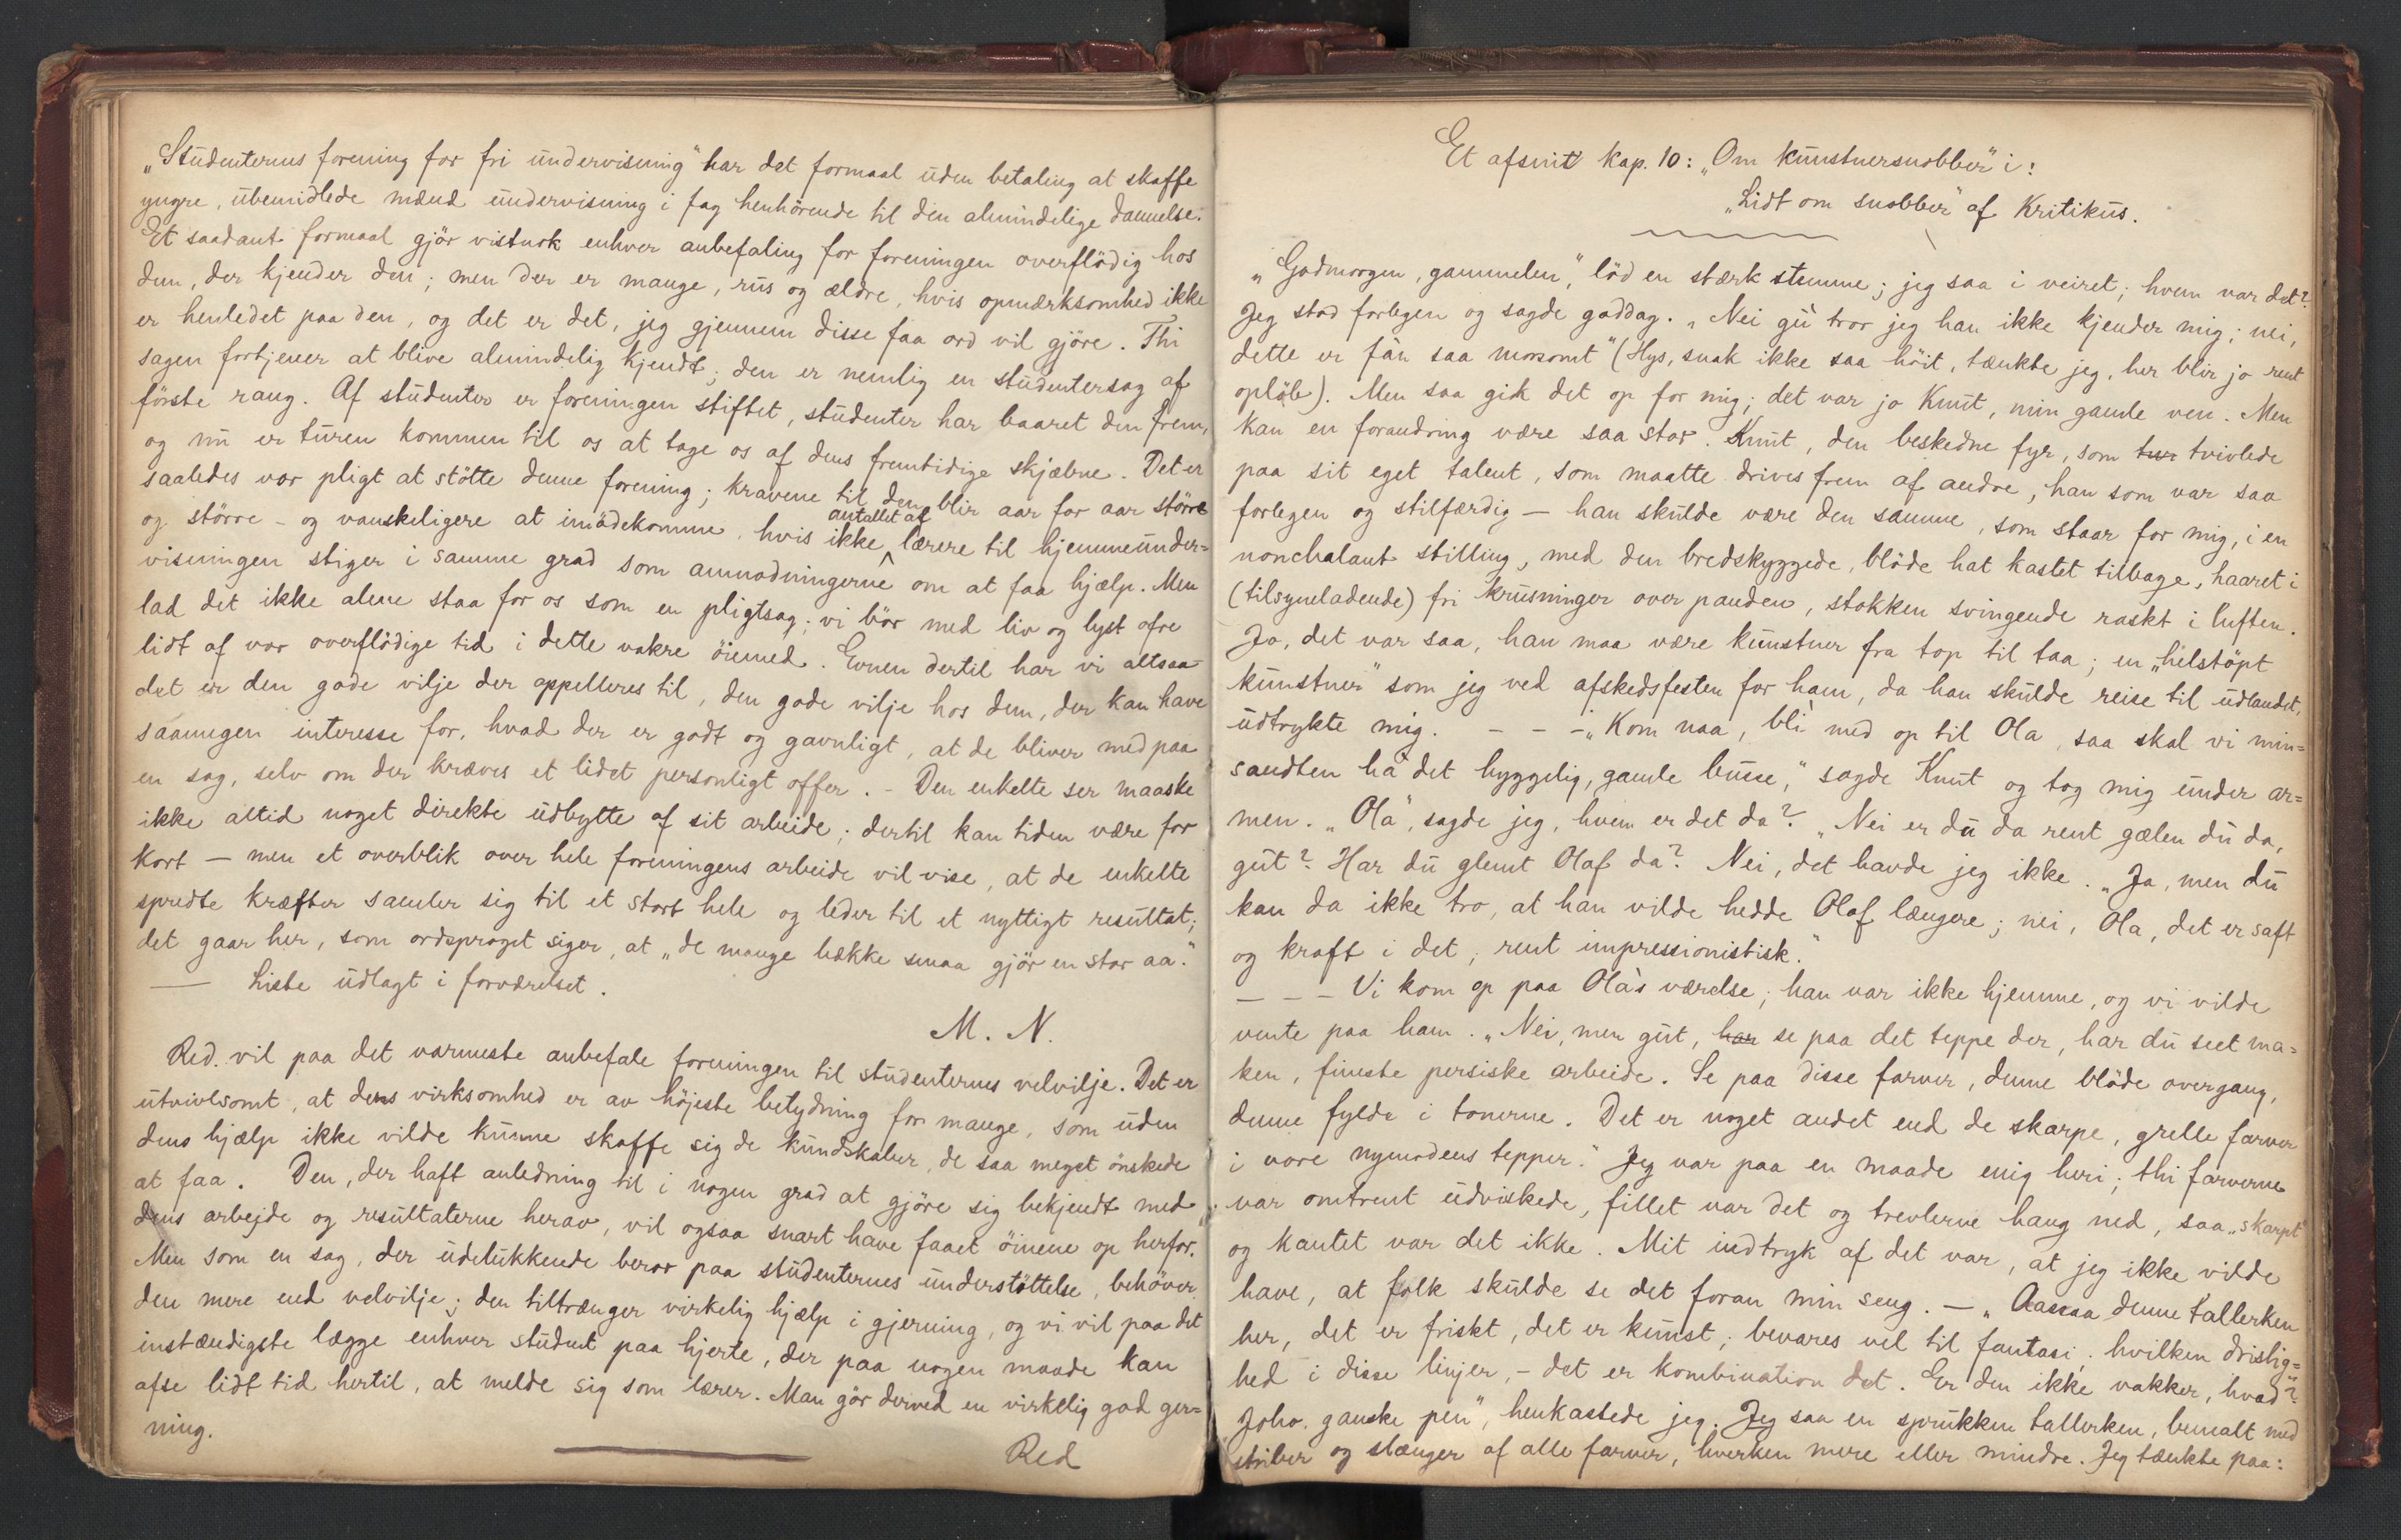 „Studenternes forening for fri undervisning" har det formaal uden betaling at skaffe
yngre, ubemidlede mænd undervisning i fag henhörende til den almindelige dannelse.
Et saadant formaal gjör vistnok enhver anbefaling for foreningen overflödig hos
dem, der kjender den; men der er mange, rus og ældre, hvis opmærksomhed ikke
er henledet paa den, og det er det, jeg gjennem disse faa ord vil gjöre. Thi
sagen fortjener at blive almindelig kjendt; den er nemlig en studentersag af
förste rang. Af studenter er foreningen stiftet, studenter har baaret den frem,
og nu er turen kommen til os at tage os af dens fremtidige skjæbne. Det er
saaledes vor pligt at stötte denne forening; kravene til den blir aar for aar större
og större – og vanskeligere at imödekomme, hvis ikke antallet af lærere til hjemmeunder=
visningen stiger i samme grad som anmodningerne om at faa hjælp. Men
lad det ikke alene staa for os som en pligtsag; vi bör med liv og lyst ofre
lidt af vor overflödige tid i dette vakre öiemed. Evnen dertil har vi altsaa
det er den gode vilje der appelleres til, den gode vilje hos dem, der kan have
saamegen interesse for, hvad der er godt og gavnligt, at de bliver med paa
en sag, selv om der kræves et lidet personligt offer. – Den enkelte ser maaske
ikke altid noget direkte udbytte af sit arbeide; dertil kan tiden være for
kort — men et overblik over hele foreningens arbeide vil vise, at de enkelte
spredte kræfter samler sig til et stort hele og leder til et nyttigt resultat;
det gaar her, som ordsproget siger, at „de mange bække smaa gjör en stor aa."
— Liste udlagt i forværelset.
M. N.
Red. vil paa det varmeste anbefale foreningen til studenternes velvilje. Det er
utvivlsomt, at dens virksomhed er av höjeste betydning for mange, som uden
dens hjælp ikke vilde kunne skaffe sig de kundskaber, de saa meget önskede
at faa. Den, der haft anledning til i nogen grad at gjöre sig bekjendt med
dens arbejde og resultaterne herav, vil ogsaa snart have faaet öinene op herfor.
Men som en sag, der udelukkende beror paa studenternes understöttelse, behöver
den mere end velvilje; den tiltrænger virkelig hjælp i gjerning, og vi vil paa det
instændigste lægge enhver student paa hjerte, der paa nogen maade kan
afse lidt tid hertil, at melde sig som lærer. Man gör derved en virkelig god ger=
ning.
Red
Et afsnit Kap. 10: „Om kunstnersnobber" i:
„Lidt om snobber" af Kritikus.
„Godmorgen, gammelen", löd en stærk stemme; jeg saa i veiret; hvem var det?
Jeg stod forlegen og sagde goddag. „Nei gu tror jeg han ikke kjender mig; nei,
dette er fân saa morsomt" (Hys, snak ikke saa höit, tænkte jeg, her blir jo rent
oplöb). Men saa gik det op for mig; det var jo Knut, min gamle ven. Men
kan en forandring være saa stor. Knut, den beskedne fyr, som tvivlede
paa sit eget talent, som maatte drives frem af andre, han som var saa
forlegen og stilfærdig — han skulde være den samme, som staar for mig, i en
nonchalant stilling, med den bredskyggede, blöde hat kastet tilbage, haaret i
(tilsyneladende) fri krusninger over panden, stokken svingende raskt i luften.
Jo, det var saa, han maa være kunstner fra top til taa; en „helstöpt
kunstner" som jeg ved afskedsfesten for ham, da han skulde reise til udlandet,
udtrykte mig. – – – „Kom naa, bli med op til Ola, saa skal vi min=
sandten ha det hyggelig, gamle busse," sagde Knut og tog mig under ar=
men. „Ola", sagde jeg, hvem er det da? „Nei er du da rent gælen du da,
gut? Har du glemt Olaf da? Nei, det havde jeg ikke. „Ja, men du
kan da ikke tro, at han vilde hedde Olaf længere; nei, Ola, det er saft
og kraft i det, rent impressionistisk."
– – – Vi kom op paa Ola's værelse; han var ikke hjemme, og vi vilde
vente paa ham. „Nei, men gut, har se paa det teppe der, har du seet ma=
ken, fineste persiske arbeide. Se paa disse farver, denne blöde overgang,
denne fylde i tonerne. Det er noget andet end de skarpe, grelle farver
i vore nymodens tepper." Jeg var paa en maade enig heri; thi farverne
var omtrent udviskede, fillet var det og trevlerne hang ned, saa „skarpt"
og kantet var det ikke. Mit indtryk af det var, at jeg ikke vilde
have, at folk skulde se det foran min seng. — „Aassaa denne tallerken
her, det er friskt, det er kunst; bevares vel til fantasi; hvilken dristig=
hed i disse linjer, – det er kombination det. Er den ikke vakker, hvad"?
Joho. ganske pen", henkastede jeg. Jeg saa en sprukken tallerken, bemalt med
striber og slænger af alle farver, hverken mere eller mindre. Jeg tænkte paa: